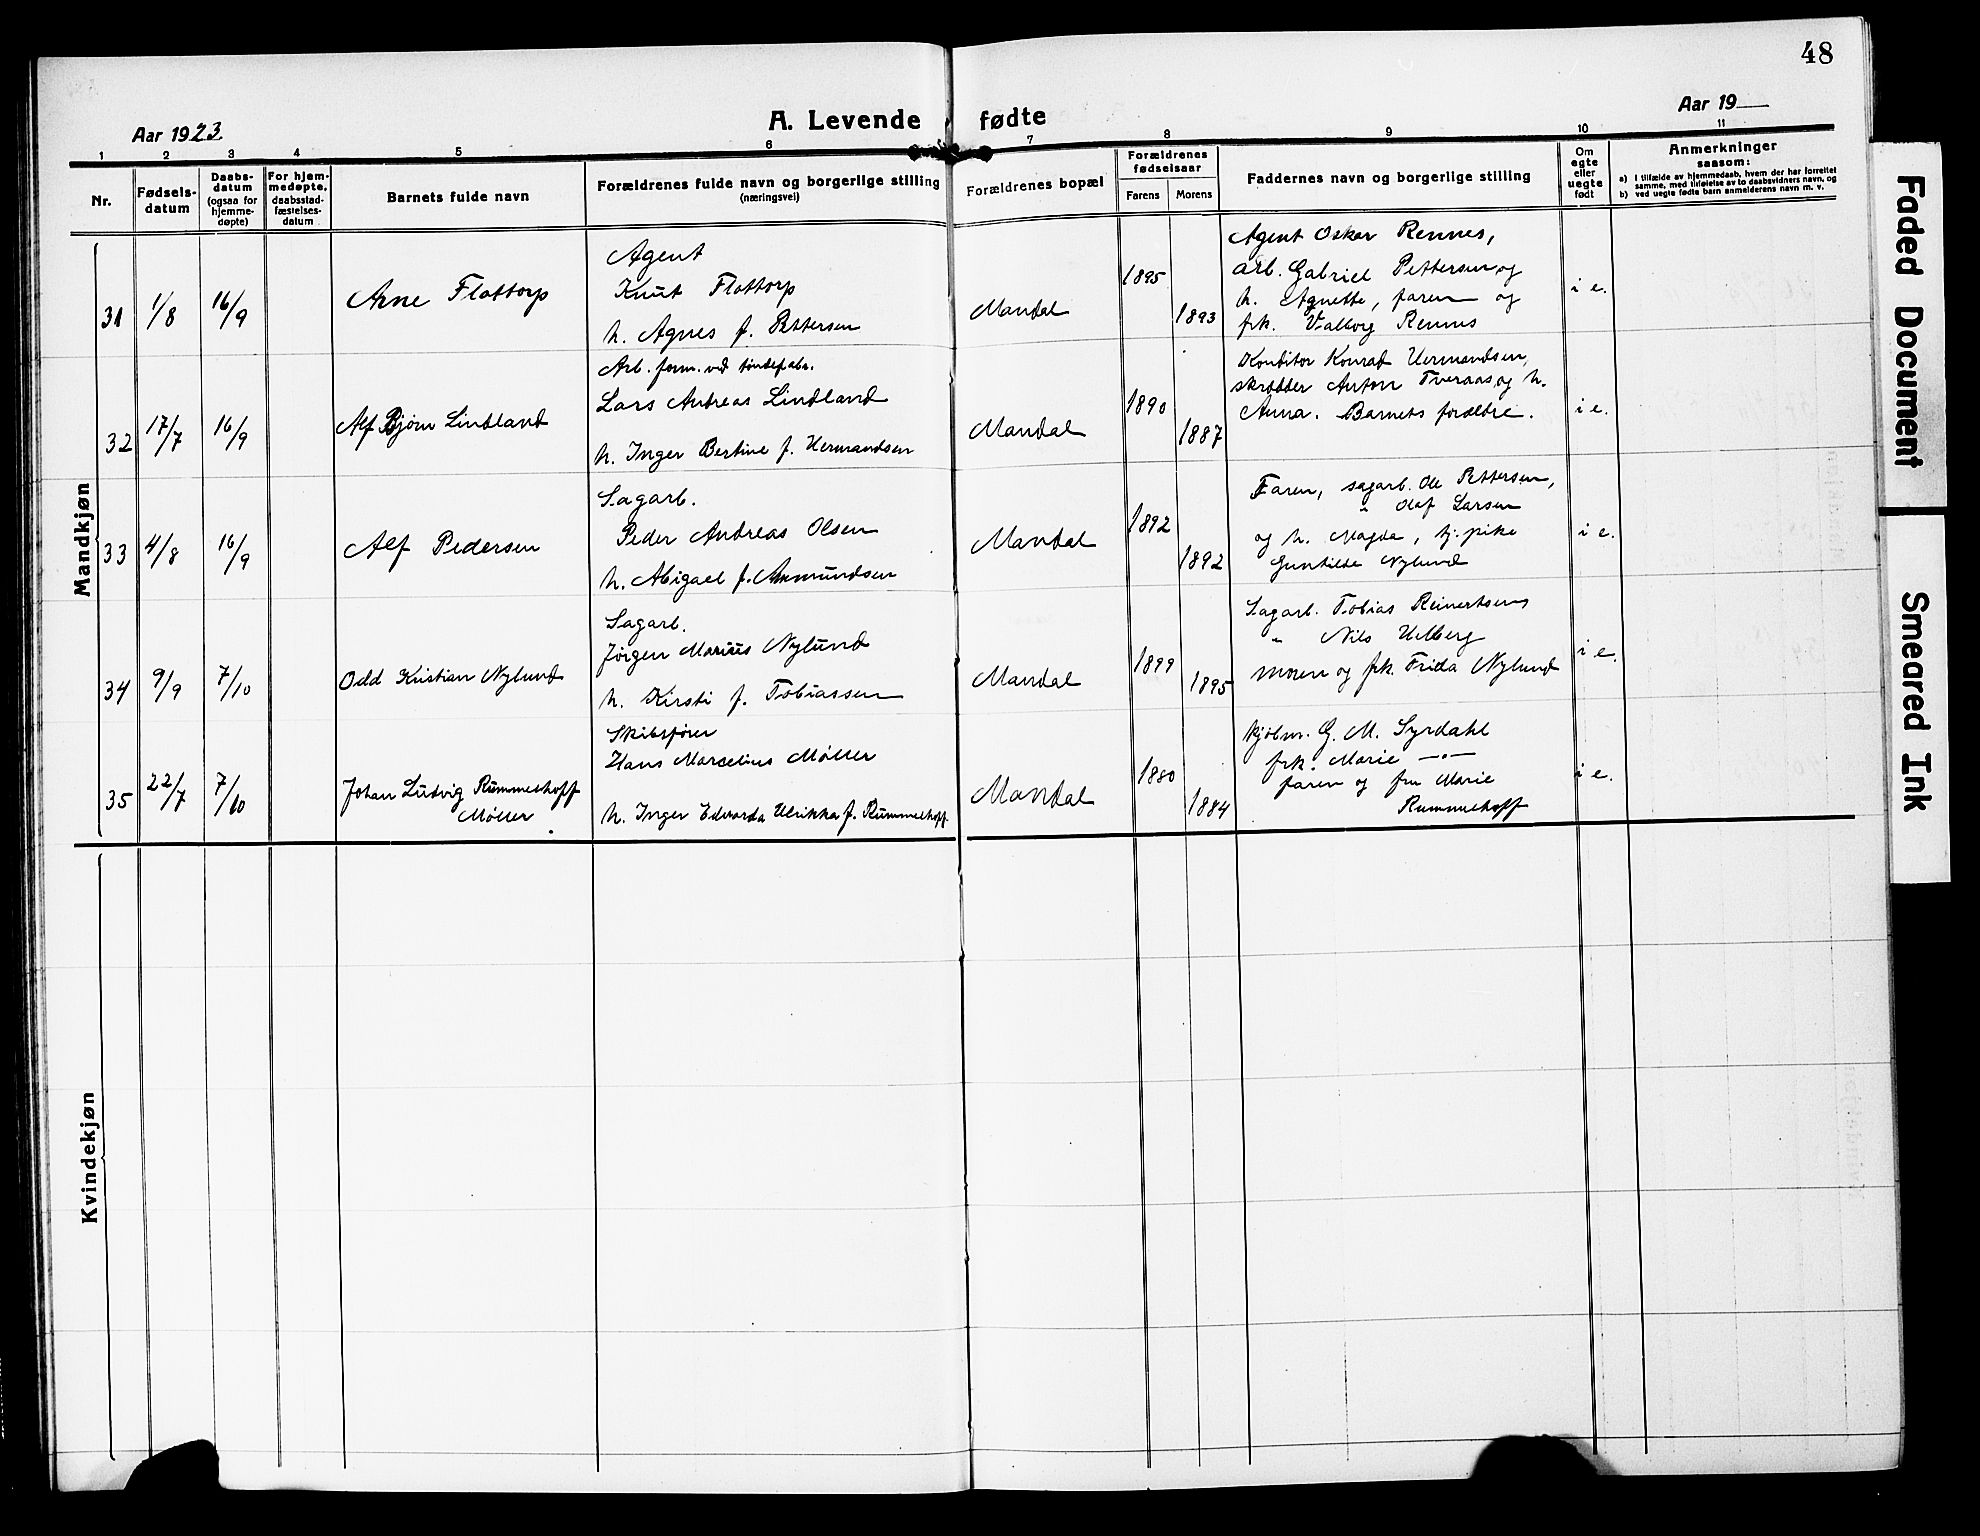 48
Aar 1923.
A. Levende fødte
Aar 19
1 2 3 4 5 6 7 8 9 10 11
Nr.
Fødsels-
datum
Daabs-
datum
(ogsaa for
hjemme-
døpte)
For hjem-
medøpte,
daabsstad-
fæstelses-
datum
Barnets fulde navn
Forældrenes fulde navn og borgerlige stilling
(næringsvei)
Forældrenes bopæl
Forældrenes
fødselsaar
Farens
Morens
Faddernes navn og borgerlige stilling
Om
egte
eller
uegte
født
Anmerkninger
saasom:
a) I tilfælde av hjemmedaab, hvem der har forrettet
samme, med tilføielse av to daabsvidners navn, og
b) ved uegte fødte barn anmelderens navn m. v.
Mandkjøn
31
1/8
16/9
Arne Flottorp
Agent
Knut Flottorp
h. Agnes f. Pettersen
Mandal
1895
1893
Agent Oskar Rennes,
arb. Gabriel Pettersen og
h. Agnette, faren og
frk. Valborg Rennes
i e.
32
17/7
16/9
Alf Bjørn Lindland
Arb. form. ved tøndefabr.
Lars Andreas Lindland
h. Inger Bertine f. Hermandsen
Mandal
1890
1887
Konditor Konrad Hermandsen,
skrædder Anton Tveraas, og h.
Anna. Barnets forældre.
i e.
33
4/8
16/9
Alf Pedersen
Sagarb.
Peder Andreas Olsen
h. Abigael f. Anmundsen
Mandal
1892
1892
Faren, sagarb. Ole Pettersen,
" Olaf Larsen
og h. Magda, tj. pike
Gunhilde Nylund
i e.
34
9/9
7/10
Odd Kristian Nylund
Sagarb.
Jørgen Marius Nylund
h. Kirsti f. Tobiassen
Mandal
1899
1895
Sagarb. Tobias Reinertsen
" Nils Uelberg
moren og frk. Frida Nylund
i e.
35
22/7
7/10
Johan Ludvig Rummelhoff
Møller
Skibsfører
Hans Marcelius Møller
h. Inger Edvarda Ulrikka f. Rummelhoff
Mandal
1880
1884
kjøbm. G. M. Syrdahl
frk. Marie —"—
faren og fru Marie
Rummelhoff
i e.
Kvindekjøn
Faded Document
Smeared Ink